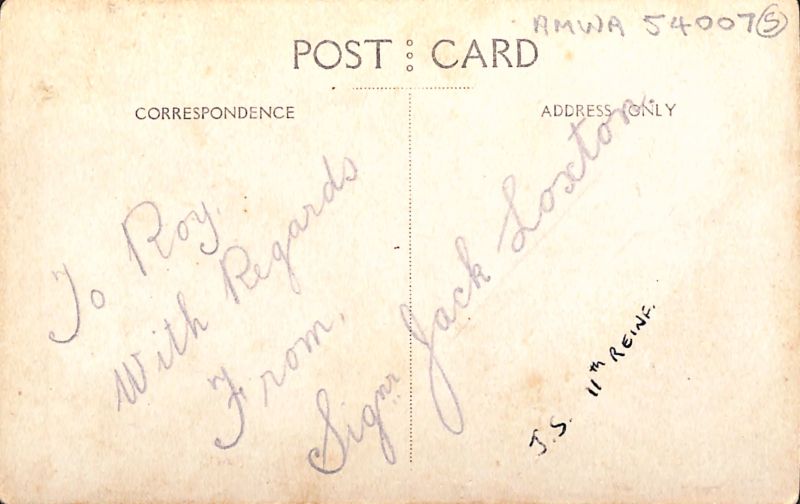 AMWA 54007 S
POST CARD
CORRESPONDENCE
ADDRESS ONLY
To Roy.
With Regards
From,
Signr Jack Loxton.
J.S. 11th REINF.